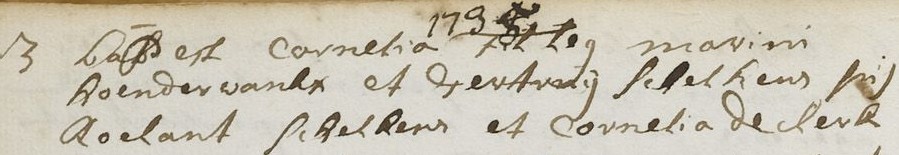 173
3 bap est Cornelia fil leg marini
hoendervanckx et gertruij Schelkens
Roelant Schelkens et Cornelia de Clerk